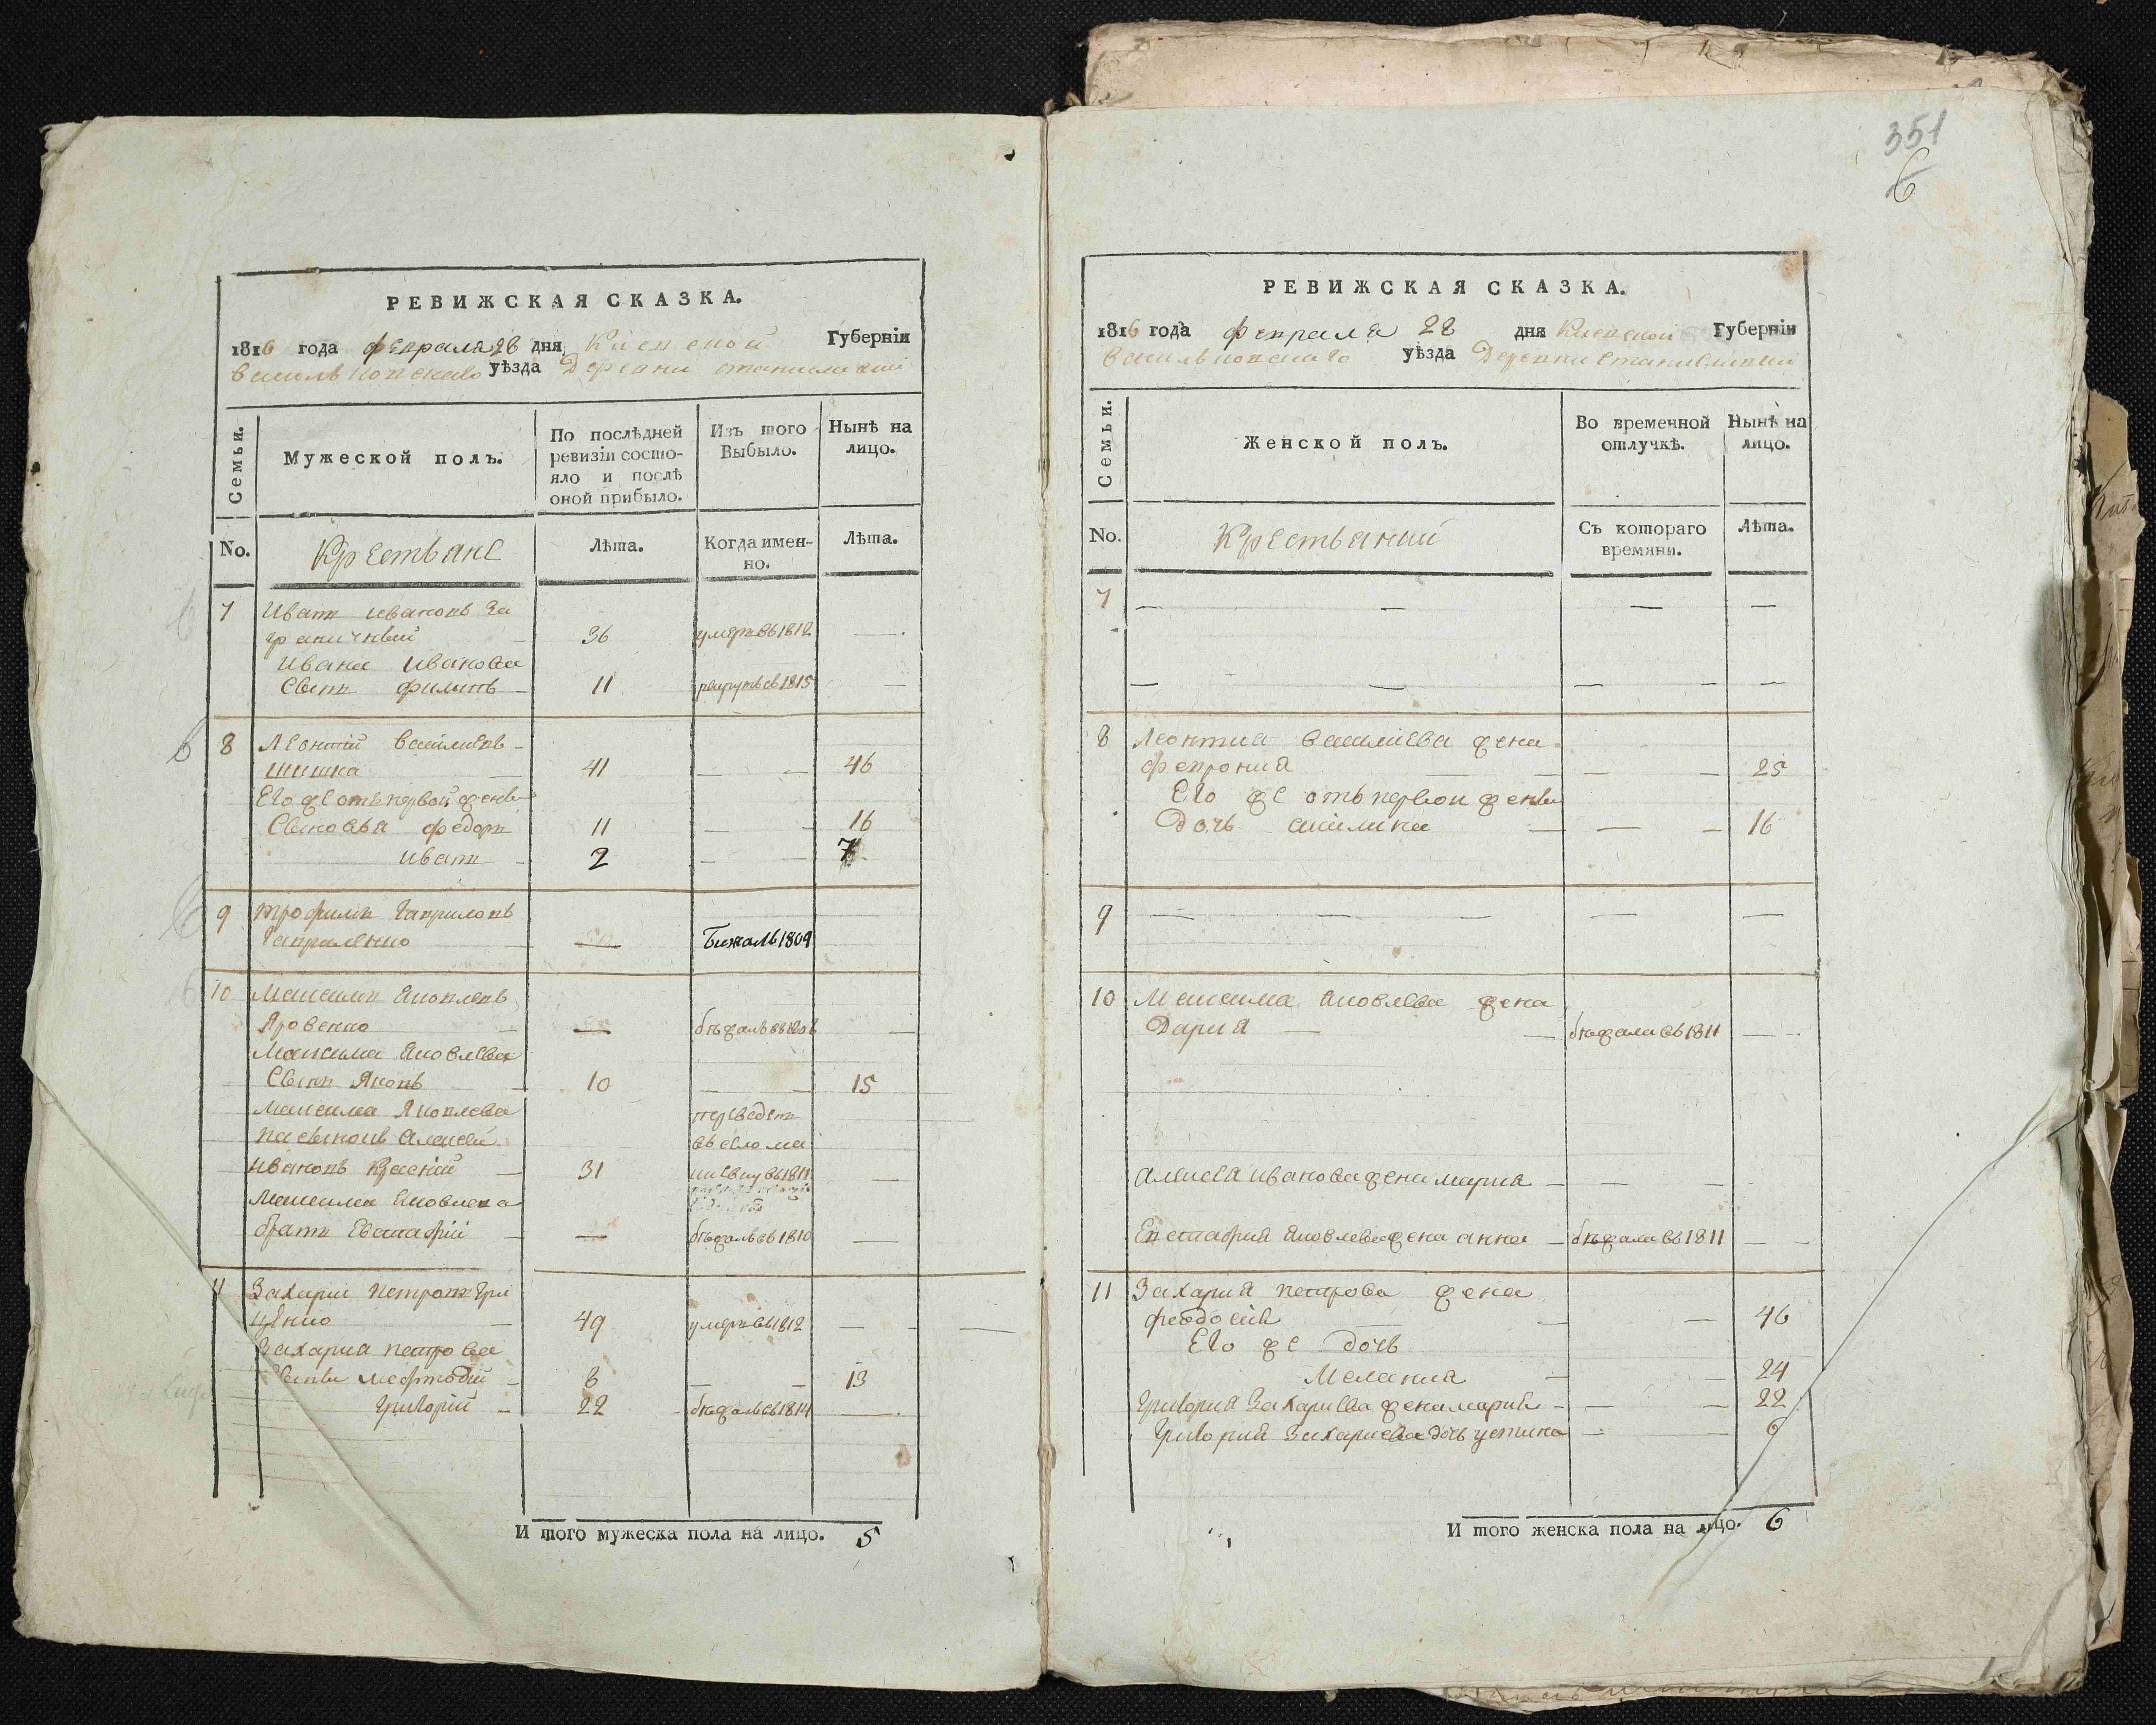 351
6
РЕВИЖСКАЯ СКАЗКА.
1816 года февраля 28 дня Киевской Губерніи
Васильковского уѣзда Деревни
Семьи.
Мужеской полъ.
По послѣдней ревизіи состояло и послѣ оной прибыло.
Изъ того Выбыло.
Нынѣ на лицо.
No.
Крестьяне
Лѣта.
Когда именно.
Лѣта.
7 Иванъ Ивановъ За
граничный 36 умеръ въ 1812 —
Ивана Иванова
Сынъ Филипъ — 11 рекрутъ въ 1815 —
8 Леонтій Василіевъ —
Шишка — 41 — — 46
Его же отъ первой жены
Сыновья Федоръ 11 — — 16
Иванъ — 2 — — 7
9 Трофимъ Гавриловъ
Гавриленко — Бижалъ 1809
10 Максимъ Яковлевъ
Яровенко — бѣжалъ въ —
Максима Яковлева
Сынъ Яковъ — 10 — — 15
Максима Яковлева
пасынокъ Алексей
Ивановъ — 31 —
переведенъ
въ село
въ 1811
Максима Яковлева
братъ Евстафій — бѣжалъ въ 1810 —
11 Захарій Петровъ Гри
ценко — 49 умеръ въ 1812 — —
Захарія Петрова
Сыны Мефтодій — 8 — — 13
Григорій — 22 — бѣжалъ въ 1814 —
И того мужеска пола на лицо. 5
РЕВИЖСКАЯ СКАЗКА.
1816 года февраля 28 дня Киевской Губерніи
Васильковского уѣзда Деревни
Семьи.
Женской полъ.
Во временной отлучкѣ.
Нынѣ на лицо.
No.
Крестьянки
Съ котораго времяни.
Лѣта.
7 — — — —
— — — — —
8 Леонтия Василіева жена
Феврония — — — — 25
Его же отъ первой жены
Дочь Акилина — — — 16
9 — — — — —
10 Максима Яковлева жена
Дария — — бѣжала въ 1811 —
Алексея Иванова жена Мария — — —
Евстафия Яковлева жена Анна — бѣжала въ 1811 — —
11 Захария Петрова жена
Феодосия — — — 46
Его же дочь
Мелания — — 24
Григория Захариева жена Мария — — — 22
Григория Захариева дочь Устина — — 6
И того женска пола на лицо. 6